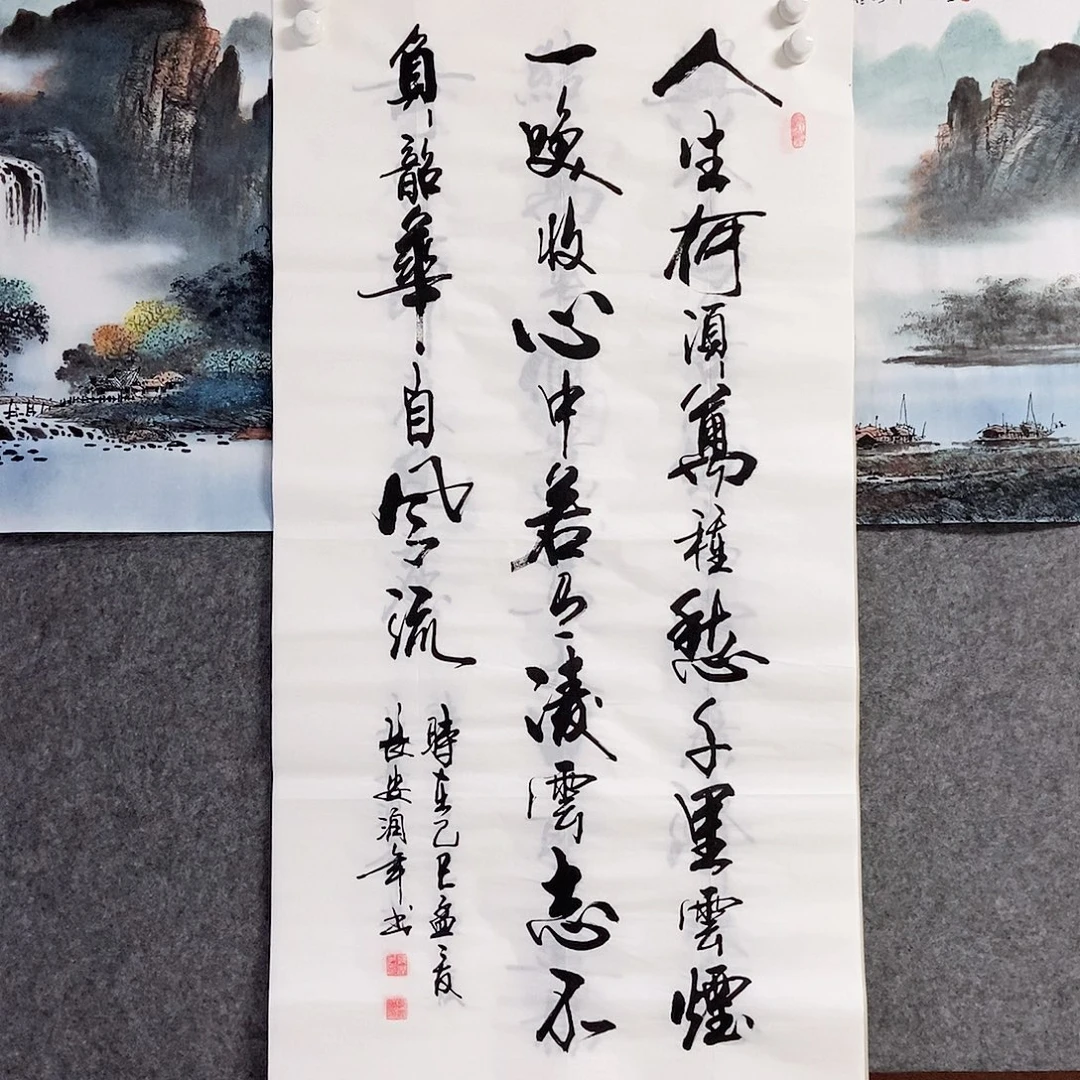 人生何須萬種愁千里雲煙
一晚收心中若有凌雲志不
負韶華自風流
時在己巳孟夏
長安潤年书